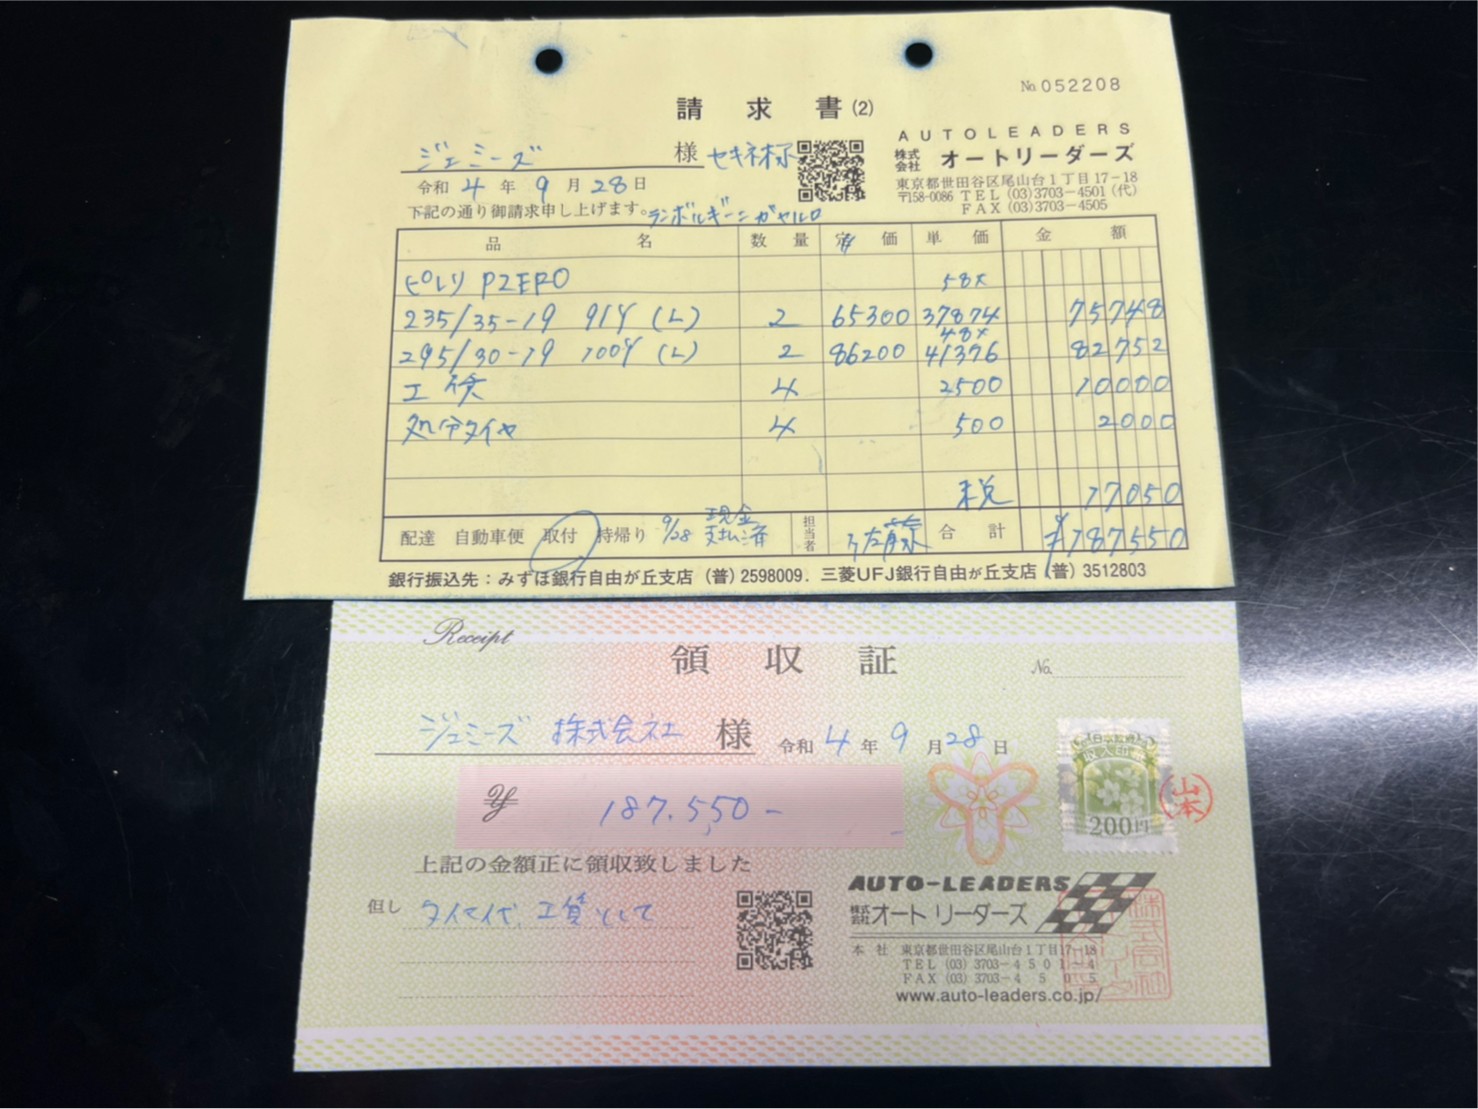 No. 052208
請求書(2)
ジェミーズ 様 セキネ様
AUTOLEADERS
株式会社 オートリーダーズ
東京都世田谷区尾山台1丁目17-18
〒158-0086 TEL (03)3703-4501(代)
FAX (03)3703-4505
令和 4 年 9 月 28 日
下記の通り御請求申し上げます。
ランボルギーニ ガヤルロ
品名 数量 定価 単価 金額
ピレリ PZERO 58%
235/35-19 91Y (L) 2 65300 37874 75748
48%
295/30-19 100Y (L) 2 86200 41376 82752
工賃 4 2500 10000
処分タイヤ 4 500 2000
税 17050
配達 自動車便 取付 持帰り 9/28 現金支払済 担当者 佐藤 合計 ¥187550
銀行振込先:みずほ銀行自由が丘支店(普)2598009. 三菱UFJ銀行自由が丘支店(普)3512803
Receipt
領収証
No.
ジェミーズ 株式会社 様 令和 4 年 9 月 28 日
収入印紙
200円
山本
¥ 187,550-
上記の金額正に領収致しました
但し タイヤ代、工賃として
AUTO-LEADERS
株式会社 オートリーダーズ
本社 東京都世田谷区尾山台1丁目17-18
TEL (03) 3703-4501~4
FAX (03) 3703-4505
www.auto-leaders.co.jp/